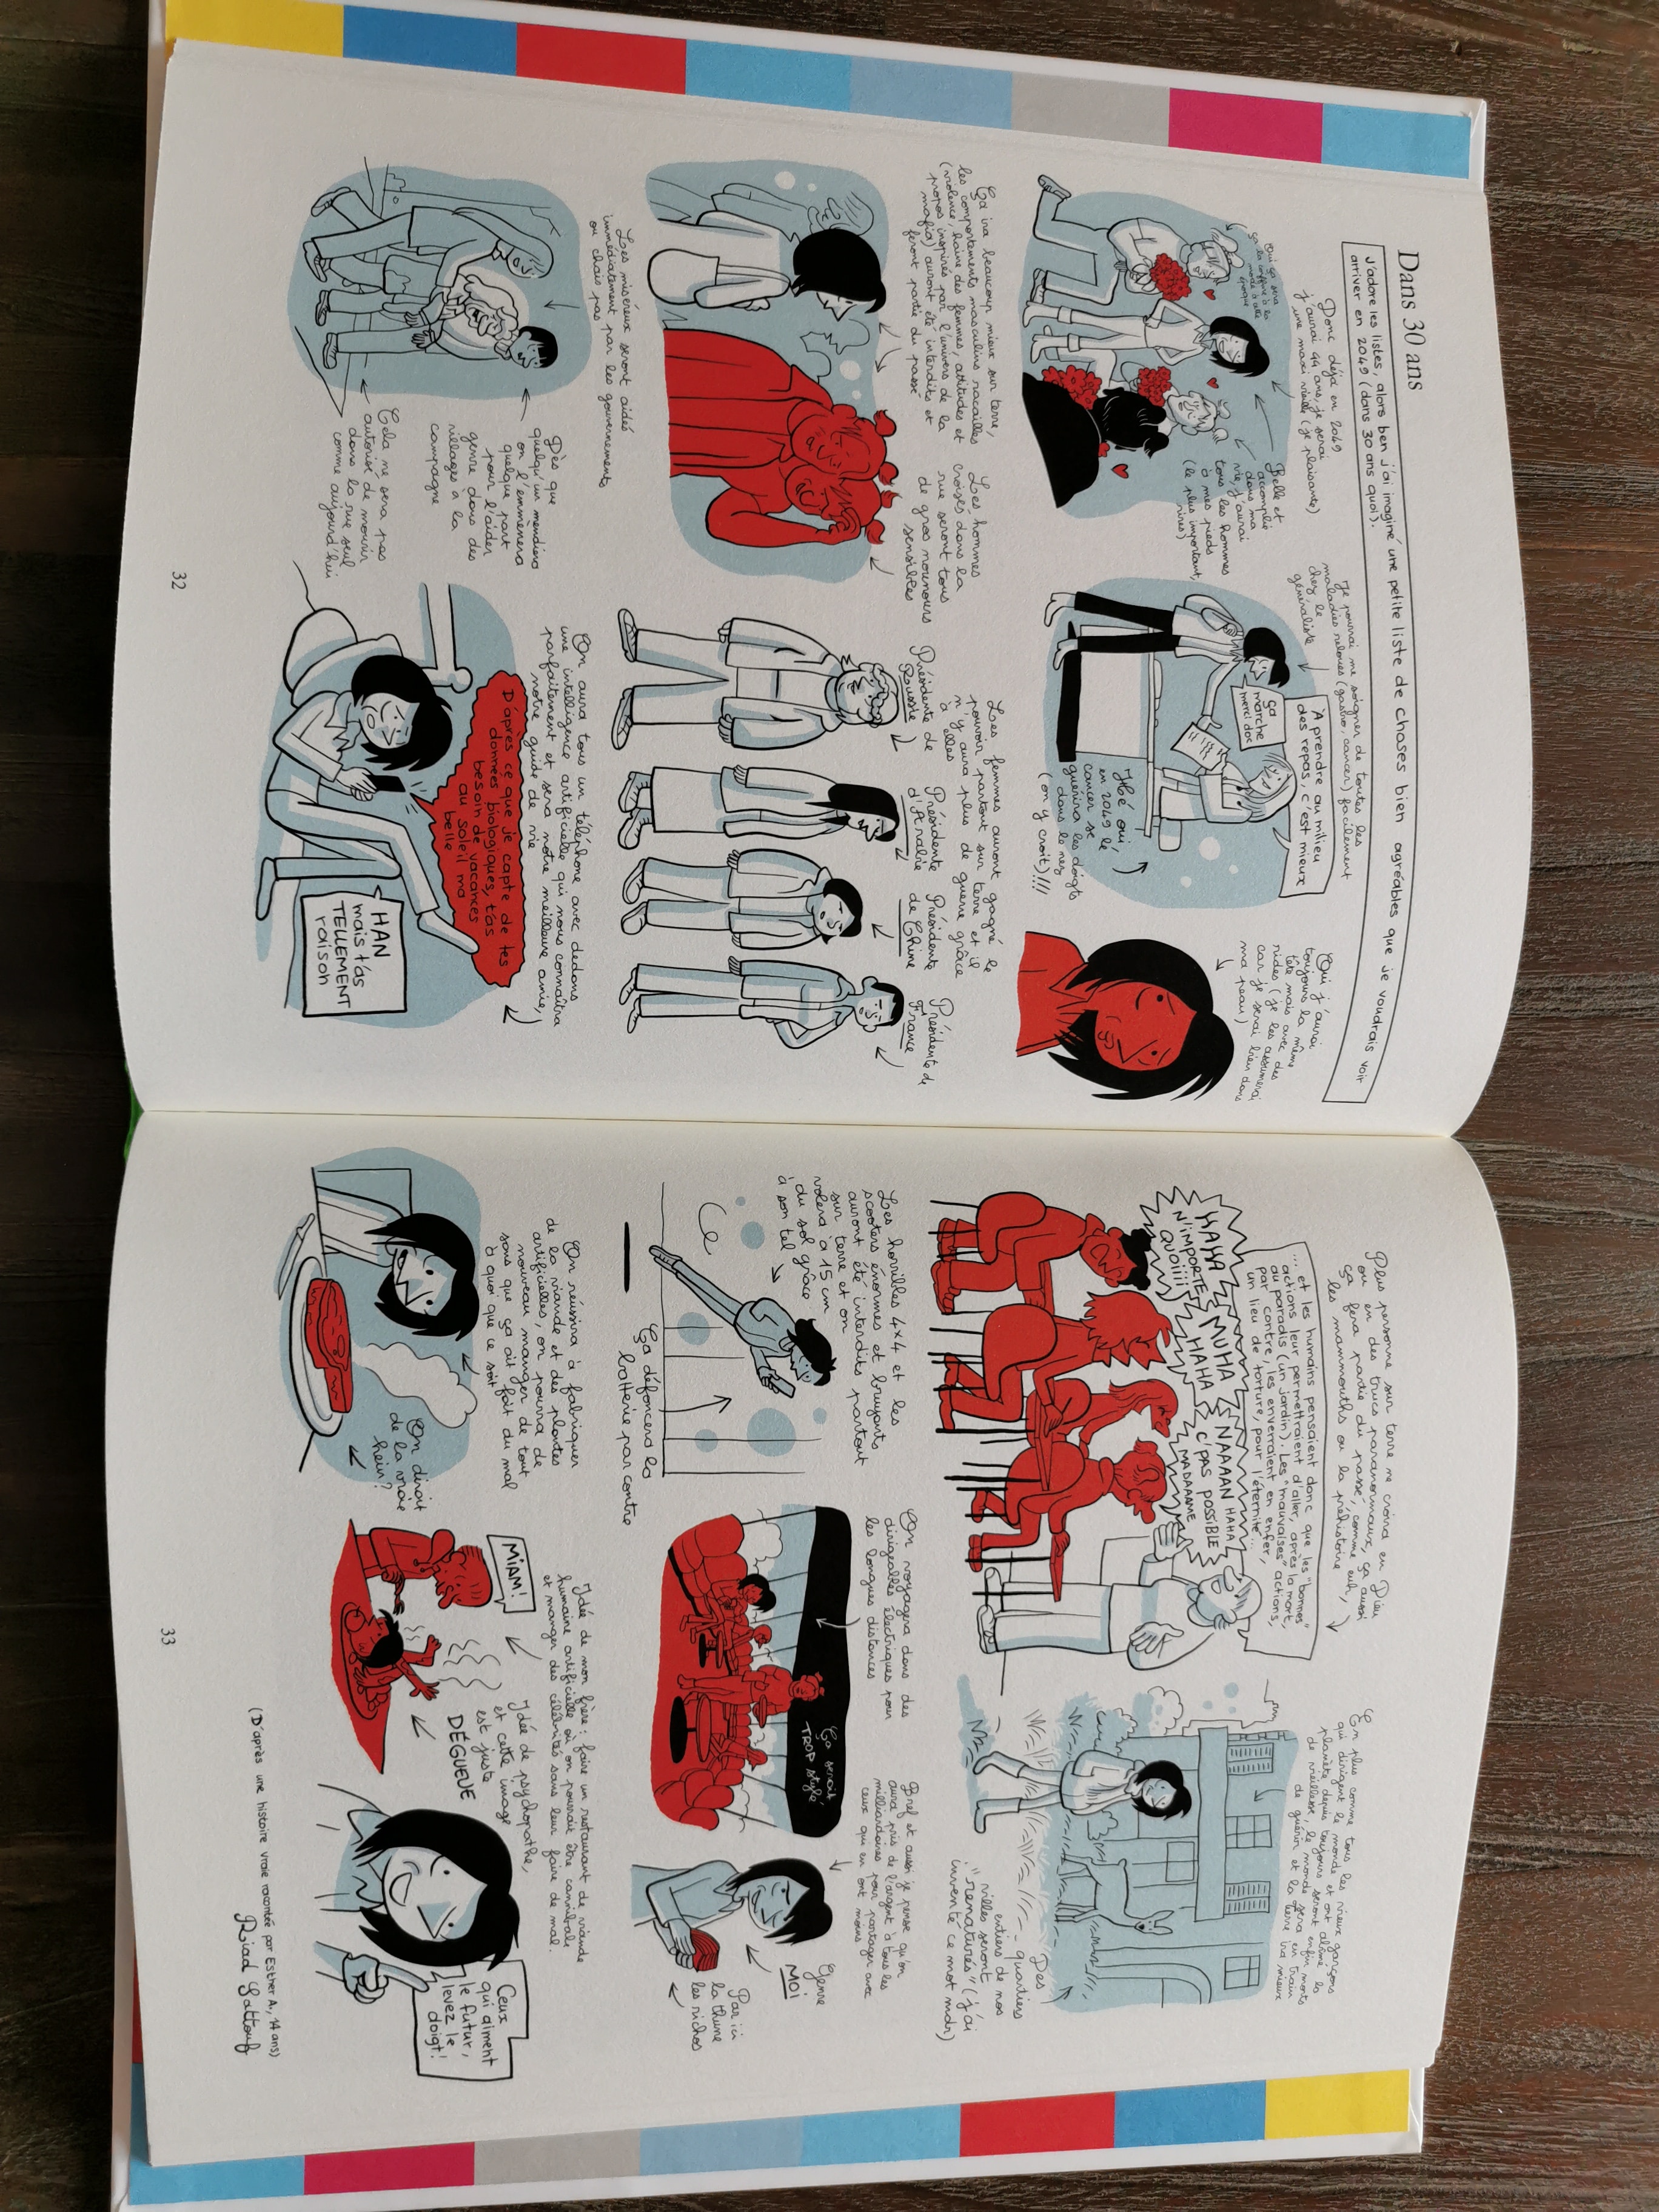 Dans 30 ans
J'adore les listes, alors ben j'ai imaginé une petite liste de choses bien agréables que je voudrais voir
arriver en 2049 (dans 30 ans quoi).
Donc déjà en 2049
j'aurai 44 ans, je serai
une maxi vieille (je plaisante)
Oui ça sera
la coiffure à la
mode à cette
époque
Belle et
accomplie
dans ma
vie, j'aurai
tous les hommes
à mes pieds
(le plus important,
rires)
Je pourrai me soigner de toutes les
maladies relous (gastro, cancer) facilement
chez le
généraliste
À prendre au milieu
des repas, c'est mieux
ça
marche
merci doc
Hé oui,
en 2049 le
cancer se
guérira les doigts
dans le nez
(on y croit)!!!
Oui j'aurai
toujours la même
tête mais avec des
rides (je les assumerai
car je serai bien dans
ma peau)
Ça ira beaucoup mieux sur terre,
les comportements masculins racailles
(violence, haine des femmes, attitudes et
propos inspirés par l'univers de la
mafia) auront été interdits et
feront partie du passé
Les hommes
croisés dans la
rue seront tous
de gros nounours
sensibles
Les femmes auront gagné le
pouvoir partout sur terre et il
n'y aura plus de guerre grâce
à elles
Présidente de
Russie
Présidente
d'Arabie
Présidente
de Chine
Présidente de
France
Les miséreux seront aidés
immédiatement par les gouvernements
ou chais pas
Dès que
quelqu'un mendiera
on l'emmènera
quelque part
pour l'aider
genre dans des
villages à la
campagne
Cela ne sera pas
autorisé de mourir
dans la rue seul
comme aujourd'hui
On aura tous un téléphone avec dedans
une intelligence artificielle qui nous connaîtra
parfaitement et sera notre meilleure amie,
notre guide de vie
D'après ce que je capte de tes
données biologiques, t'as
besoin de vacances
au soleil ma
belle
HAN
mais t'as
TELLEMENT
raison
32
Plus personne sur terre ne croira en Dieu
ou en des trucs paranormaux, ça aussi
ça fera partie du passé, comme euh,
les mammouths ou la préhistoire
... et les humains pensaient donc que les "bonnes"
actions leur permettraient d'aller, après la mort,
au paradis (un jardin). Les "mauvaises" actions,
par contre, les enverraient en enfer,
un lieu de torture, pour l'éternité...
HAHA
N'IMPORTE
QUOIIII
MUHA
HAHA
NAAAN HAHA
C'PAS POSSIBLE
MADAAAME
En plus comme tous les vieux garçons
qui dirigent le monde et ont abîmé la
planète depuis toujours seront enfin morts
de vieillesse, le monde sera en train
de guérir et la terre ira mieux
Des
quartiers
entiers de nos
villes seront
"renaturés" (j'ai
inventé ce mot mdr)
Les horribles 4x4 et les
scooters énormes et bruyants
auront été interdits partout
sur terre et on
volera à 15 cm
du sol grâce
à son tel
Ça défoncera la
batterie par contre
On voyagera dans des
dirigeables électriques pour
les longues distances
Ça serait
TROP stylé
Bref et aussi je pense qu'on
aura pris de l'argent à tous les
milliardaires pour partager avec
ceux qui en ont moins
Genre
MOI
Par ici
la thune
les richos
On réussira à fabriquer
de la viande et des plantes
artificielles, on pourra de
nouveau manger de tout
sans que ça ait fait du mal
à quoi que ce soit
On dirait
de la vraie
hein?
Idée de mon frère : faire un restaurant de viande
humaine artificielle où on pourrait être cannibale
et manger des célébrités sans leur faire de mal.
MIAM!
Idée de psychopathe,
et cette image
est juste
DÉGUEUE
Ceux
qui aiment
le futur,
levez le
doigt!
(D'après une histoire vraie racontée par Esther A., 14 ans)
Riad Sattouf
33